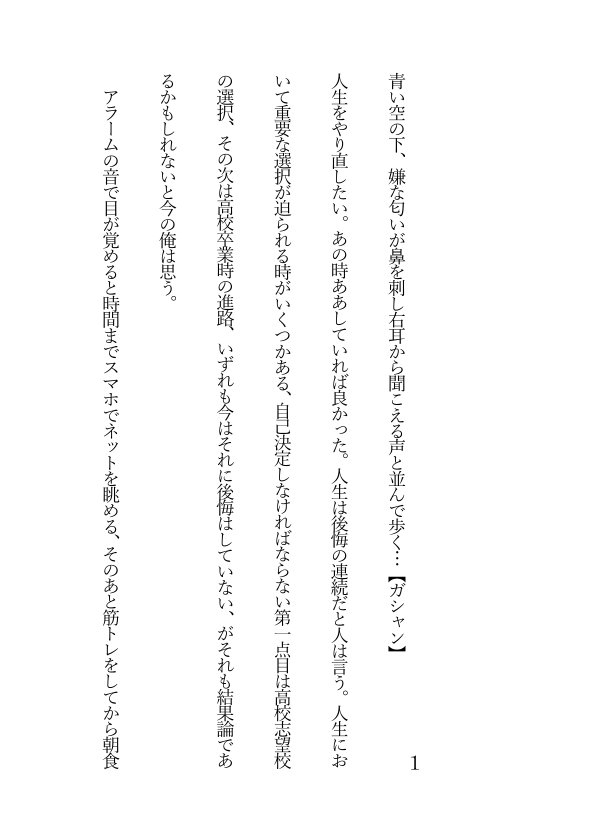 青い空の下、嫌な匂いが鼻を刺し右耳から聞こえる声と並んで歩く…【ガシャン】
人生をやり直したい。あの時ああしていれば良かった。人生は後悔の連続だと人は言う。人生にお
いて重要な選択が迫られる時がいくつかある、自己決定しなければならない第一点目は高校志望校
の選択、その次は高校卒業時の進路、いずれも今はそれに後悔はしていない、がそれも結果論であ
るかもしれないと今の俺は思う。
アラームの音で目が覚めると時間までスマホでネットを眺める、そのあと筋トレをしてから朝食
1